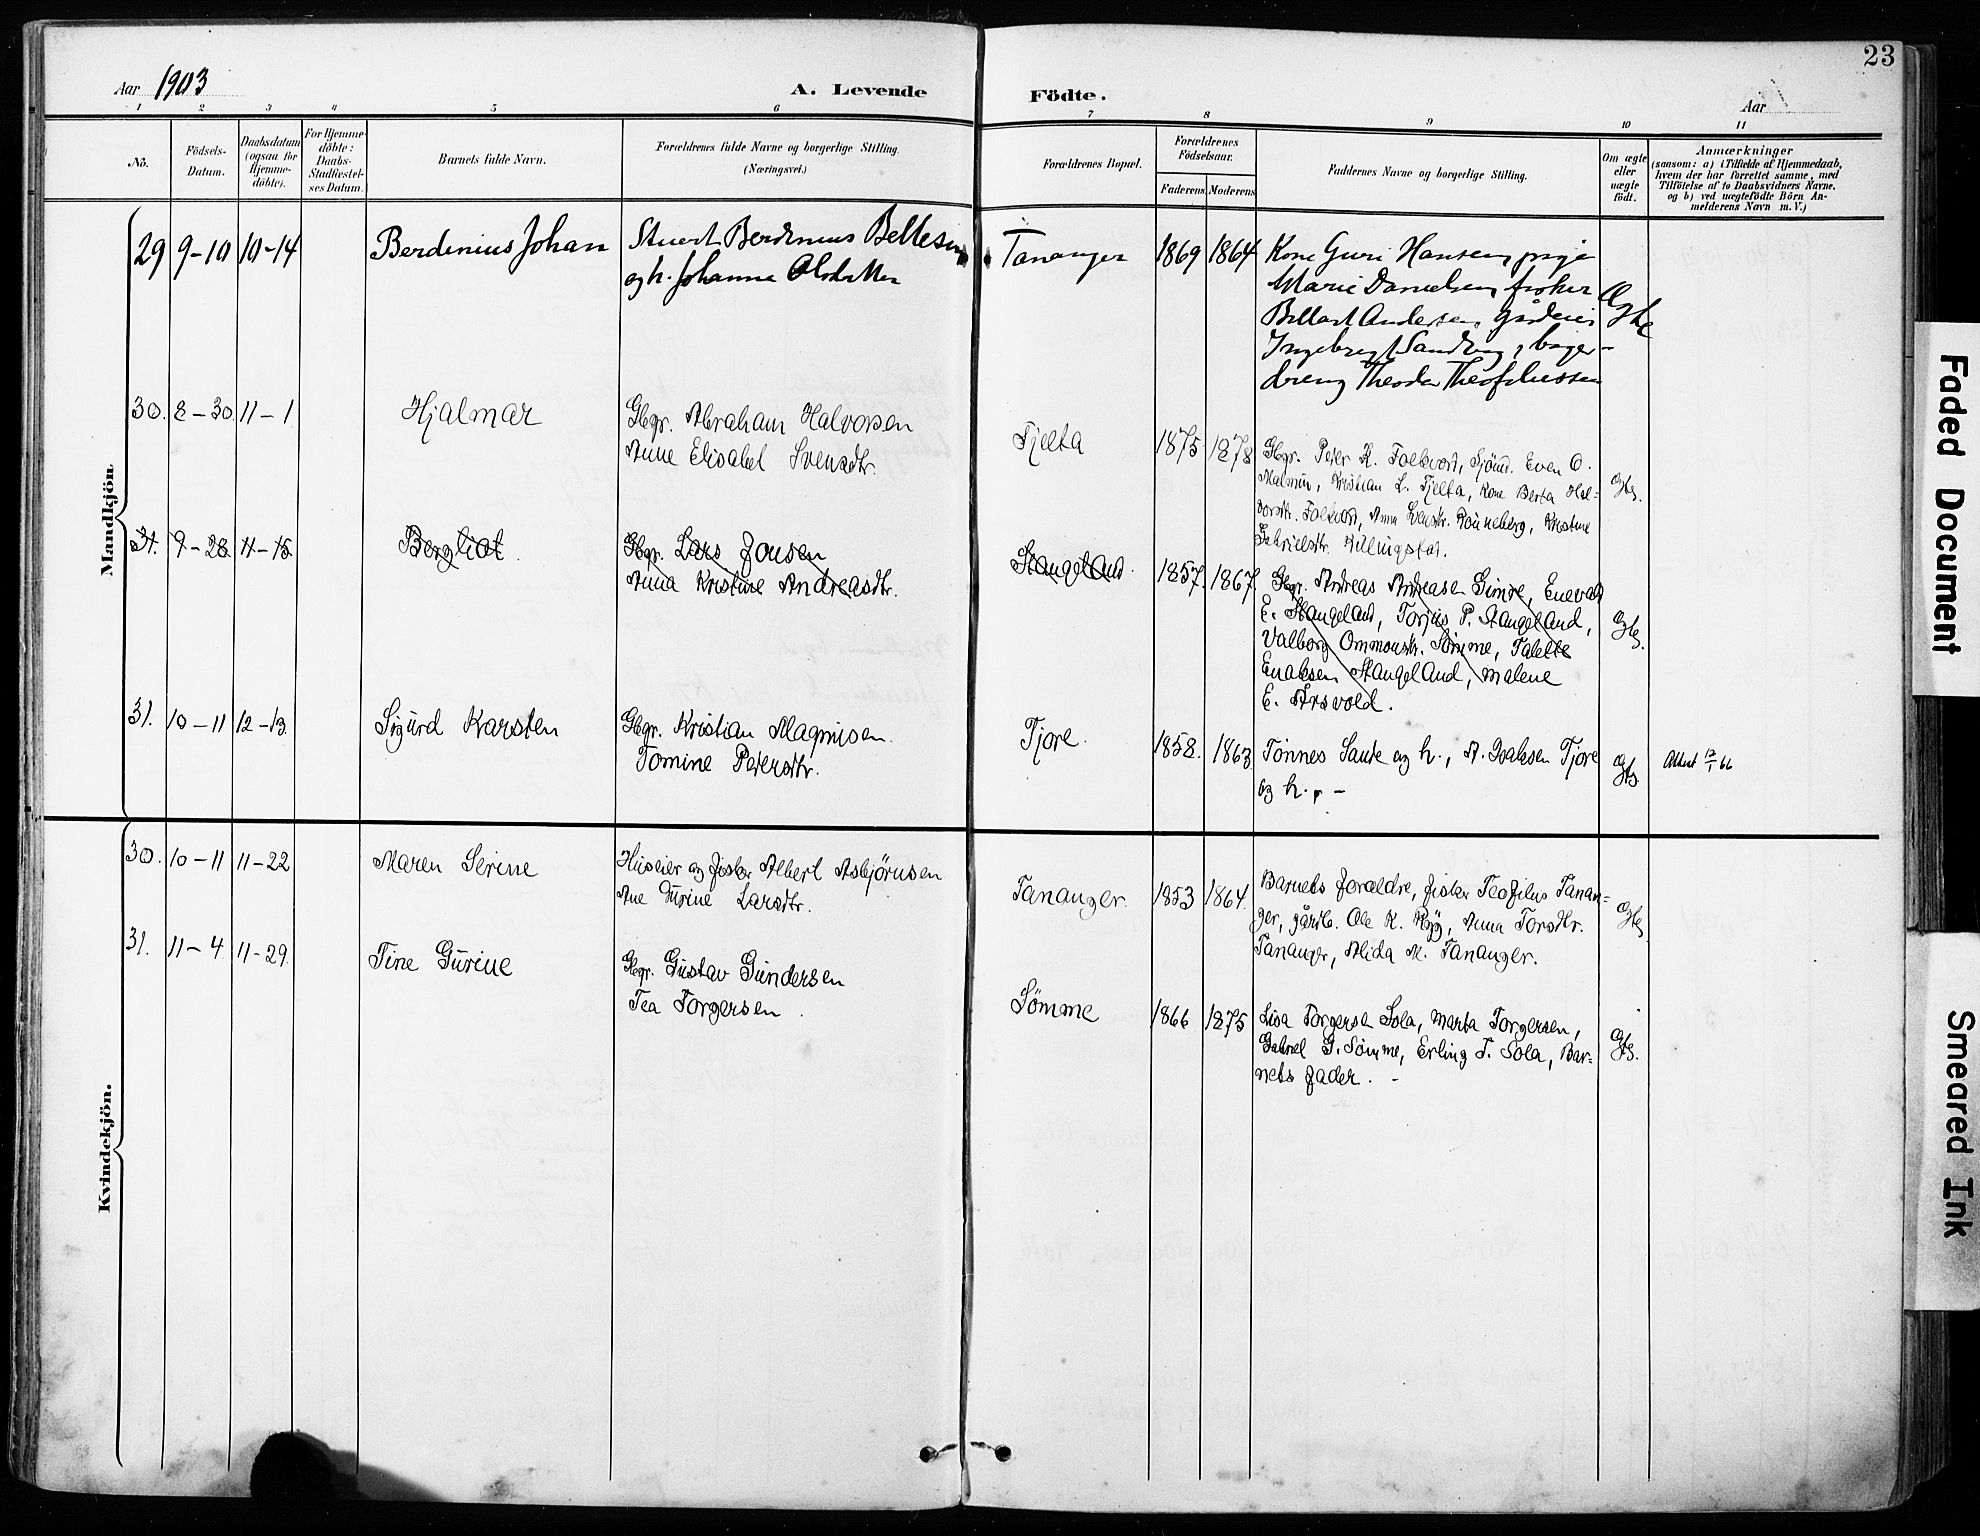 23
Aar 1903
A. Levende Födte.
Aar
1 2 3 4 5 6 7 8 9 10 11
No.
Födsels-
Datum.
Daabsdatum
(ogsaa for
Hjemme-
döbte).
For Hjemme-
döbte:
Daabs-
Stadfæstel-
ses Datum.
Barnets fulde Navn.
Forældrenes fulde Navne og borgerlige Stilling.
(Næringsvei.)
Forældrenes Bopæl.
Forældrenes
Födselsaar.
Faderens. Moderens.
Faddernes Navne og borgerlige Stilling.
Om ægte
eller
uægte
födt.
Anmærkninger
(saasom: a) i Tilfælde af Hjemmedaab,
hvem der har forrettet samme, med
Tilföielse af to Daabsvidners Navne,
og b) ved uægtefödte Börn An-
melderens Navn m. V.)
Mandkjön
29 9-10 10-14 Berdinius Johan
Stuert Berdinius Bellesen
og h. Johanna
Tananger 1869 1864
Kone Guri Hansen, pige
Marie Danielsen, fisker
Bellart Andersen, gårdeier
Ingebregt Sandvig, bager-
dreng Theodor Theofilussen
Ægte
30. 8-30 11-1 Hjalmar
Gbgr. Abraham Halvorsen
Anne Elisabet Svensdtr.
Tjelta 1875 1878
Gbgr. Peter K. Folkvord, Sjömd. Even O.
Malmin, Kristian L. Tjelta, Kone Berta Hal-
vorsdtr. Folkvord, Anna Svensdtr. Rönneberg, Kristine
Gabrielsdtr. Killingstad.
Gte.
31. 9-28 11-15 Bergliot
Gbgr. Lars Jonsen
Anna Kristine Andreasdtr.
Stangeland. 1857. 1867.
Gbgr. Andreas Andreasen Gimre, Enevald
E. Stangeland, Torjus P. Stangeland,
Valborg Ommonsdtr. Sömme, Talette
Enaksen Stangeland, Malene
E. Årsvold.
Gte.
31. 10-11 12-13 Sigurd Karsten
Gbgr. Kristian Magnusen.
Tomine Pedersdtr.
Tjore. 1858. 1863
Tönnes Sande og h., A. Isaksen Tjore
og h. -
Gte
66
Kvindekjön.
30. 10-11 11-22 Maren Serine
Huseier og fisker Albert Asbjörnsen
Ane Gurine Larsdtr.
Tananger. 1853 1864.
Barnets forældre, fisker Teofilus Tanan-
ger, gårdb. Ole K. Myg, Anna Torsdtr.
Tananger, Alida M. Tananger.
Gte
31. 11-4 11-29. Tine Gurine
Gbgr. Gustav Gundersen
Tea Torgersen.
Sömme 1866 1875
Lisa Torgersen Sola, Marta Torgersen,
Gabriel G. Sömme, Erling T. Sola, Bar-
nets fader. -
Gte.
Faded Document
Smeared Ink